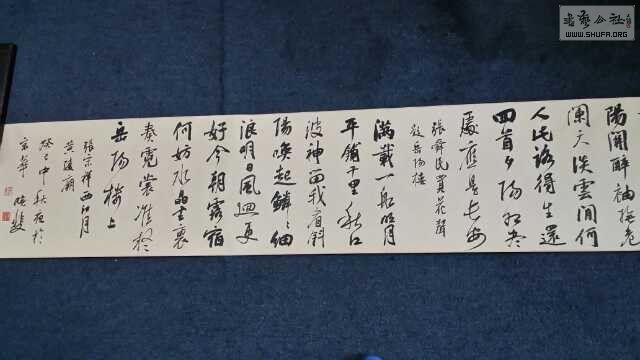 書藝公社
WWW.SHUFA.ORG
陽關醉袖撫危
闌天淡雲閒何
人此路得生還
回首夕陽紅盡
處應是長安
張舜民買花聲
題岳陽樓
滿載一船明月
平鋪千里秋江
波神留我看斜
陽喚起鱗鱗細
浪明日風迴更
好今朝露宿
何妨水晶宮裏
奏霓裳準擬
岳陽樓上
張孝祥西江月
黃陵廟
癸巳中秋夜於
京華